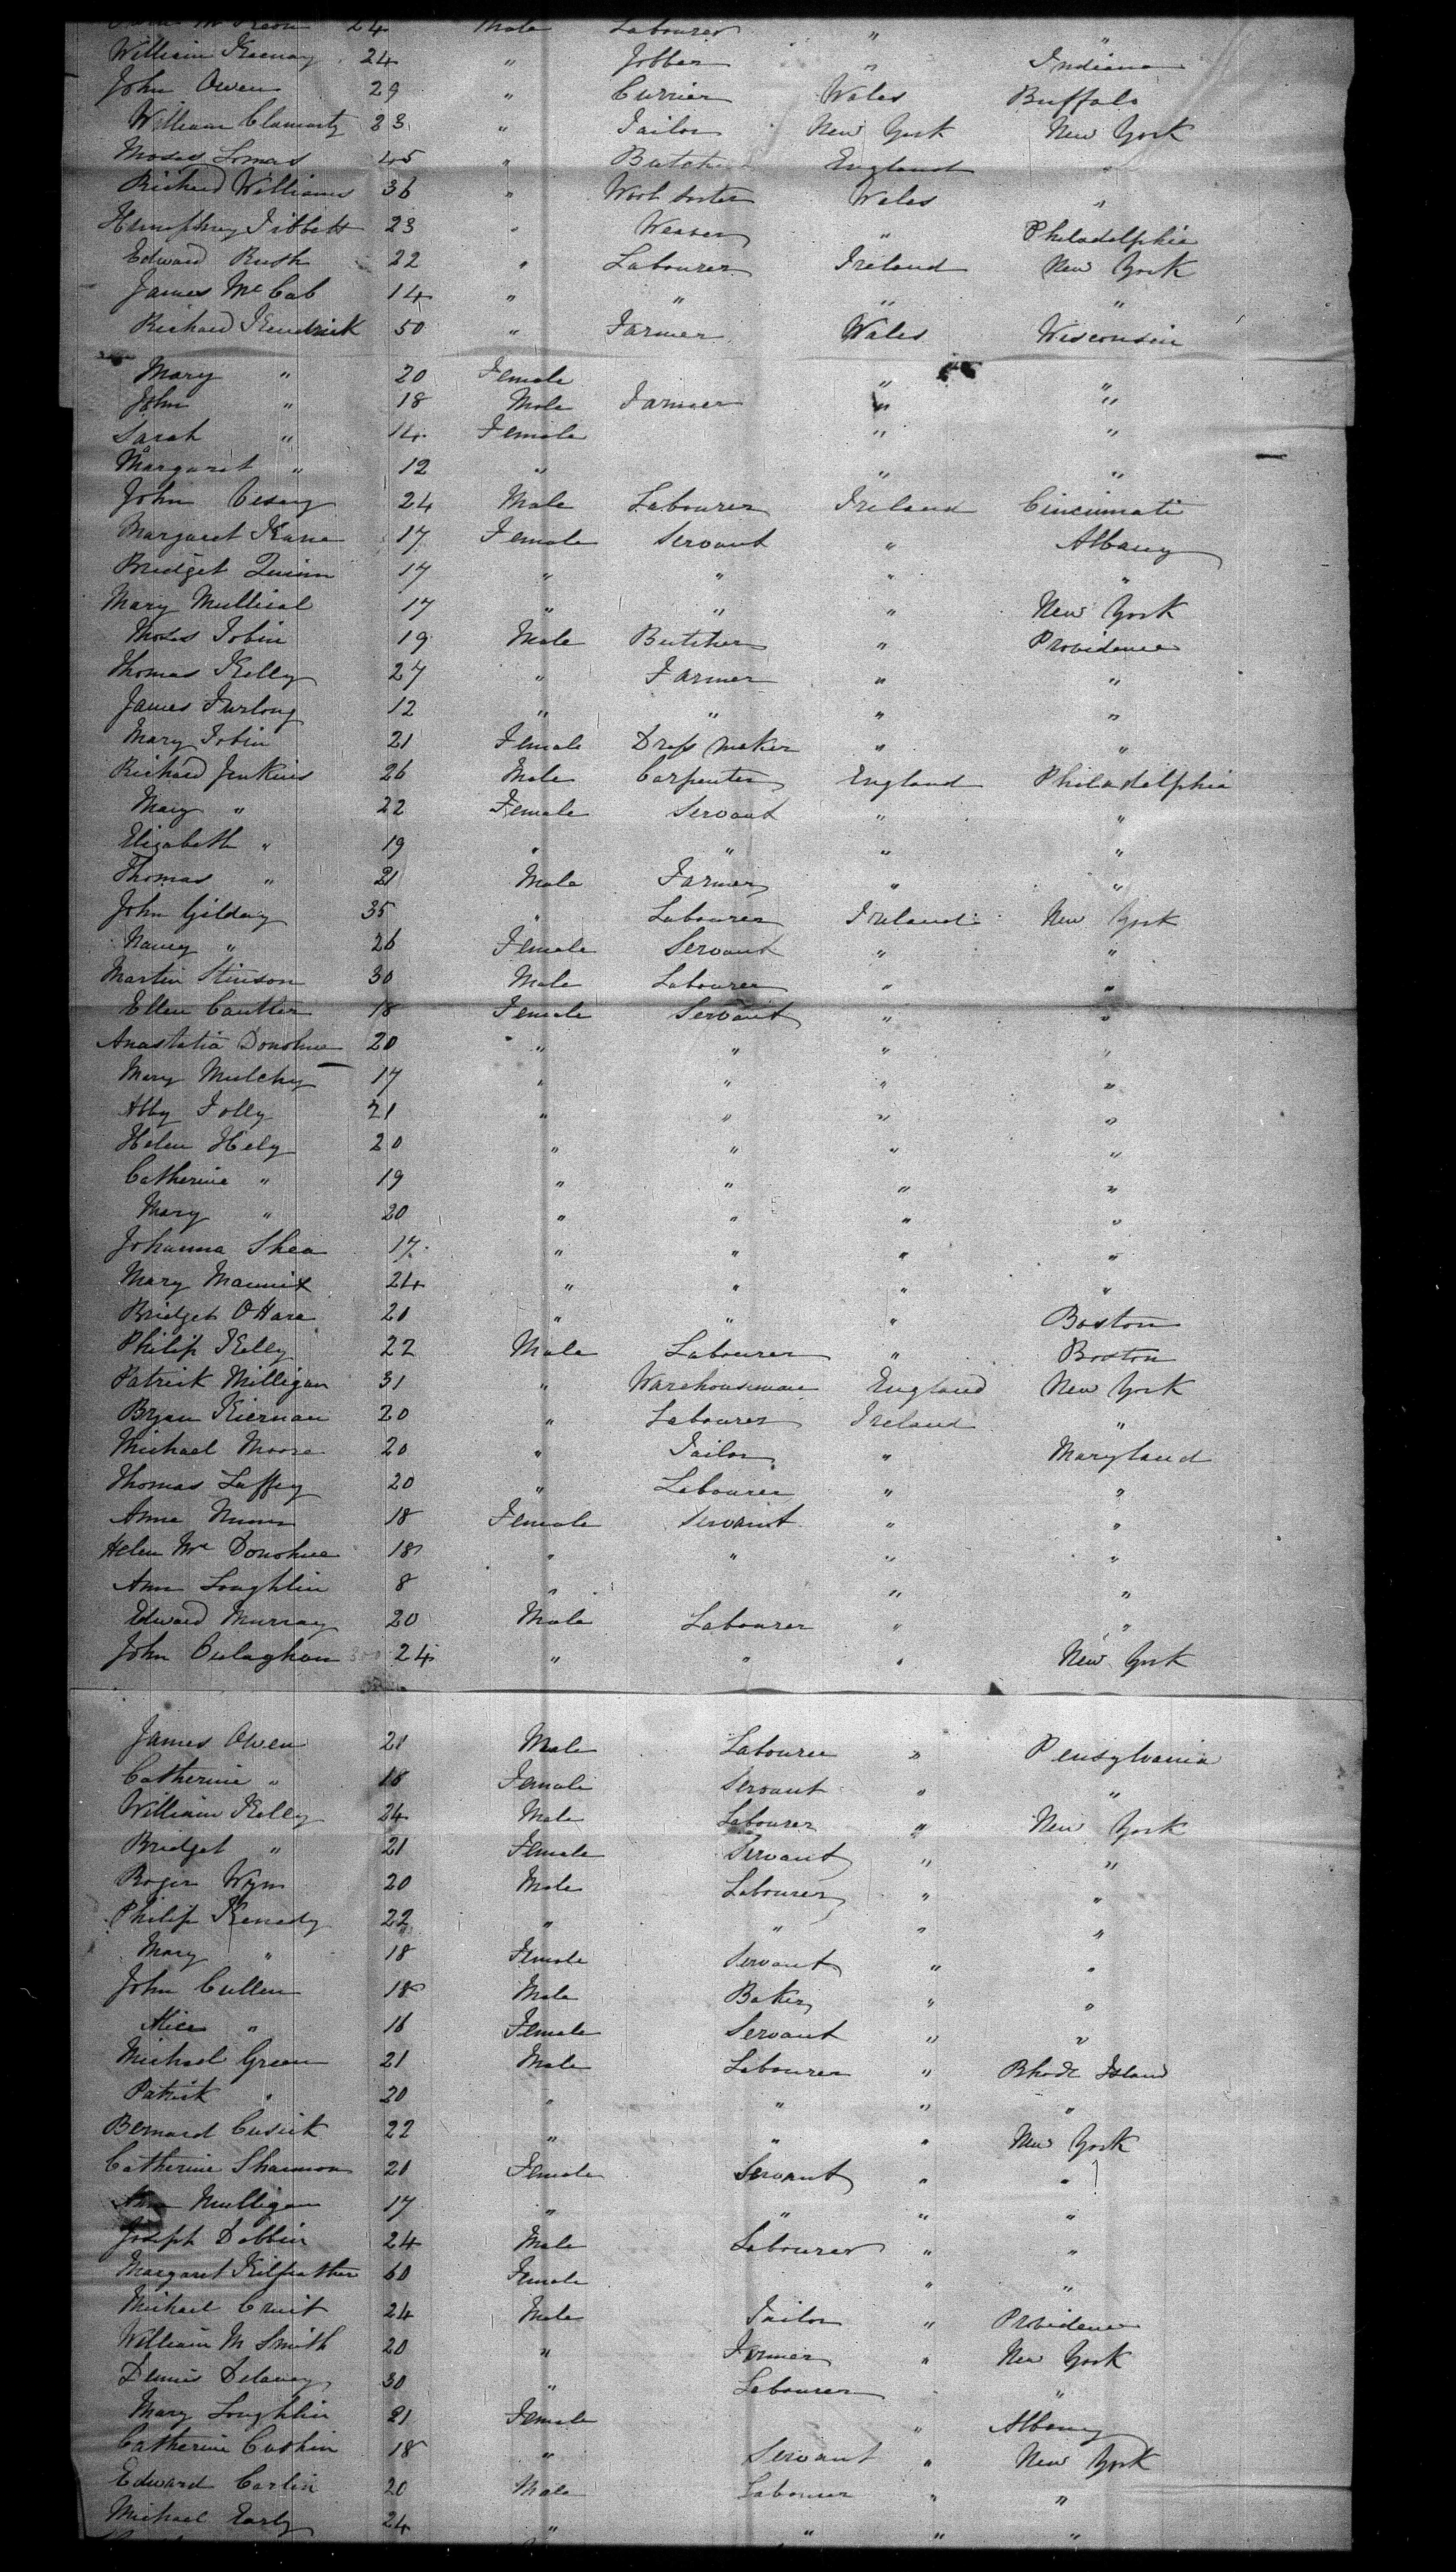 24 Male Labourer " "
William Keenay 24 " Jobber " Indiana
John Owen 29 " Currier Wales Buffalo
William Clamarty 23 " Tailor New York New York
Moses Lomas 45 " Butcher England "
Richard Williams 36 " Wool sorter Wales "
Humphrey Tibbett 23 " Weaver " Philadelphia
Edward Rush 22 " Labourer Ireland New York
James McCab 14 " " " "
Richard Kendrick 50 " Farmer Wales Wisconsin
Mary " 20 Female " "
John " 18 Male Farmer " "
Sarah " 14 Female " "
Margaret " 12 " " "
John Vesey 24 Male Labourer Ireland Cincinnati
Margaret Kane 17 Female Servant " Albany
Bridget Quinn 17 " " " "
Mary Mullical 17 " " " New York
Moses Tobin 19 Male Butcher " Providence
Thomas Kelly 27 " Farmer " "
James Furlong 12 " " " "
Mary Tobin 21 Female Dress maker " "
Richard Jenkins 26 Male Carpenter England Philadelphia
Mary " 22 Female Servant " "
Elizabeth " 19 " " " "
Thomas " 21 Male Farmer " "
John Gilday 35 " Labourer Ireland New York
Nancy " 26 Female Servant " "
Martin Stinson 30 Male Labourer " "
Ellen Cantter 18 Female Servant " "
Anastatia Donohue 20 " " " "
Mary Mulchy 17 " " " "
Abby Folly 21 " " " "
Helen Hely 20 " " " "
Catherine " 19 " " " "
Mary " 20 " " " "
Johanna Shea 17 " " " "
Mary Mannix 24 " " " "
Bridget O Hara 20 " " " Boston
Philip Kelly 22 Male Labourer " Boston
Patrick Milligan 31 " Warehouseman England New York
Bryan Kiernan 20 " Labourer Ireland "
Michael Moore 20 " Tailor " Maryland
Thomas Laffey 20 " Labourer " "
Anne Nunn 18 Female Servant " "
Helen Mc Donohue 18 " " " "
Ann Loughlin 8 " " "
Edward Murray 20 Male Labourer " "
John Culaghan 24 " " " New York
James Owen 21 Male Labourer " Pensylvania
Catherine " 18 Female Servant " "
William Kelly 24 Male Labourer " New York
Bridget " 21 Female Servant " "
Roger Wynn 20 Male Labourer " "
Philip Kenedy 22 " " " "
Mary " 18 Female Servant " "
John Cullen 18 Male Baker " "
Alice " 16 Female Servant " "
Michael Green 21 Male Labourer " Rhode Island
Patrick " 20 " " " "
Bernard Cusick 22 " " " New York
Catherine Shannon 20 Female Servant " "
Ann Mulligan 17 " " " "
Joseph Dobbin 24 Male Labourer " "
Margaret Kilfeather 60 Female " "
Michael Cruit 24 Male Tailor " Providence
William M Smith 20 " Farmer " New York
Dennis Delaney 30 " Labourer " "
Mary Loughlin 21 Female " Albany
Catherine Cushin 18 " Servant " New York
Edward Carlin 20 Male Labourer " "
Michael Early 24 " " " "